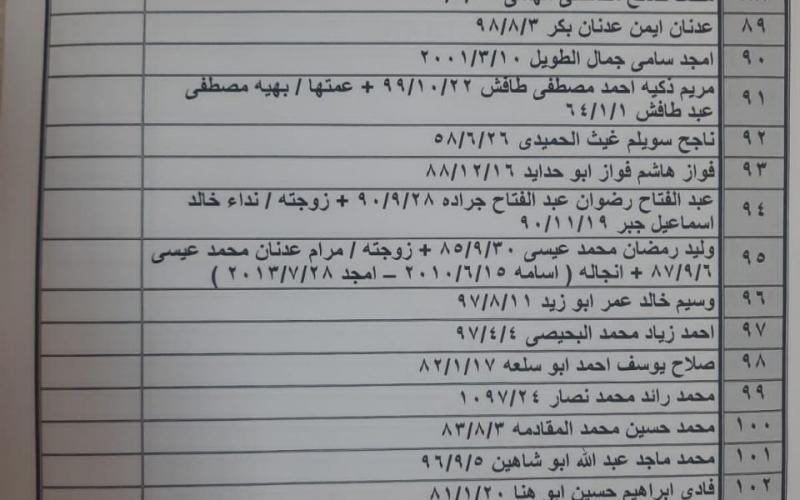 ٨٩ عدنان ايمن عدنان بكر ٩٨/٨/٣
٩٠ امجد سامى جمال الطويل ٢٠٠١/٣/١٠
٩١ مريم ذكيه احمد مصطفى طافش ٩٩/١٠/٢٢ + عمتها / بهيه مصطفى
عبد طافش ٦٤/١/١
٩٢ ناجح سويلم غيث الحميدى ٥٨/٦/٢٦
٩٣ فواز هاشم فواز ابو حدايد ٨٨/١٢/١٦
٩٤ عبد الفتاح رضوان عبد الفتاح جراده ٩٠/٩/٢٨ + زوجته / نداء خالد
اسماعيل جبر ٩٠/١١/١٩
٩٥ وليد رمضان محمد عيسى ٨٥/٩/٣٠ + زوجته / مرام عدنان محمد عيسى
٨٧/٩/٦ + انجاله ( اسامه ٢٠١٠/٦/١٥ – امجد ٢٠١٣/٧/٢٨ )
٩٦ وسيم خالد عمر ابو زيد ٩٧/٨/١١
٩٧ احمد زياد محمد البحيصى ٩٧/٤/٤
٩٨ صلاح يوسف احمد ابو سلعه ٨٢/١/١٧
٩٩ محمد رائد محمد نصار ١٠٩٧/٢٤
١٠٠ محمد حسين محمد المقادمه ٨٣/٨/٣
١٠١ محمد ماجد عبد الله ابو شاهين ٩٦/٩/٥
١٠٢ فادى ابراهيم حسين ابو هنا ٨١/١/٢٠